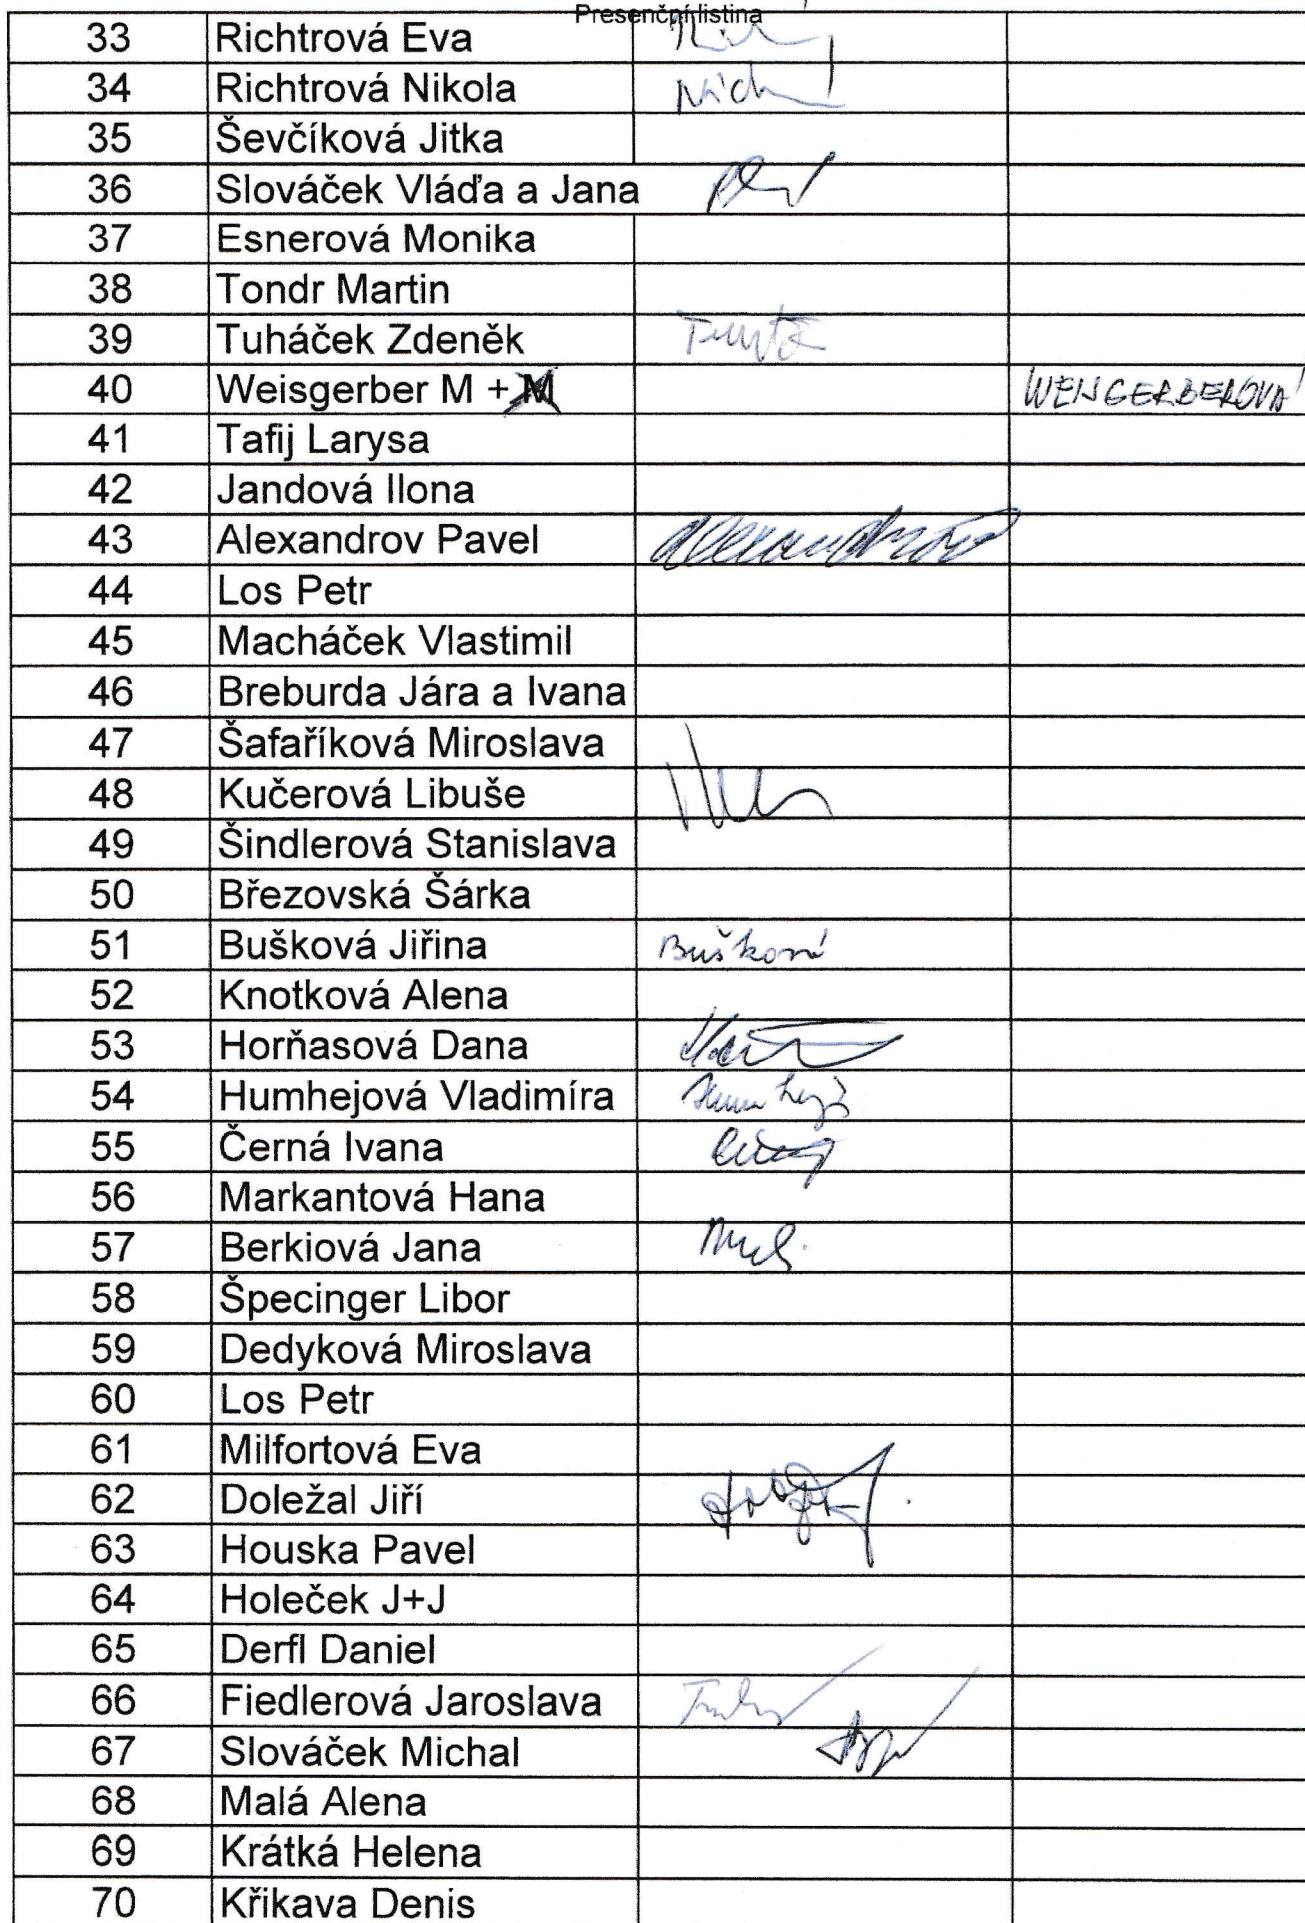 Presenční listina
33 Richtrová Eva
34 Richtrová Nikola
35 Ševčíková Jitka
36 Slováček Vláďa a Jana
37 Esnerová Monika
38 Tondr Martin
39 Tuháček Zdeněk
40 Weisgerber M + M WEISGERBEROVÁ
41 Tafij Larysa
42 Jandová Ilona
43 Alexandrov Pavel Alexandrov
44 Los Petr
45 Macháček Vlastimil
46 Breburda Jára a Ivana
47 Šafaříková Miroslava
48 Kučerová Libuše
49 Šindlerová Stanislava
50 Březovská Šárka
51 Bušková Jiřina Bušková
52 Knotková Alena
53 Horňasová Dana
54 Humhejová Vladimíra
55 Černá Ivana
56 Markantová Hana
57 Berkiová Jana
58 Špecinger Libor
59 Dedyková Miroslava
60 Los Petr
61 Milfortová Eva
62 Doležal Jiří
63 Houska Pavel
64 Holeček J+J
65 Derfl Daniel
66 Fiedlerová Jaroslava
67 Slováček Michal
68 Malá Alena
69 Krátká Helena
70 Křikava Denis